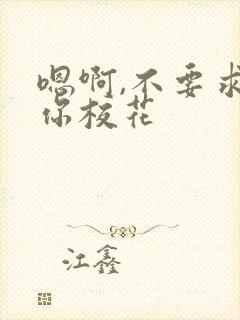 嗯啊,不要求
你校花
江鑫